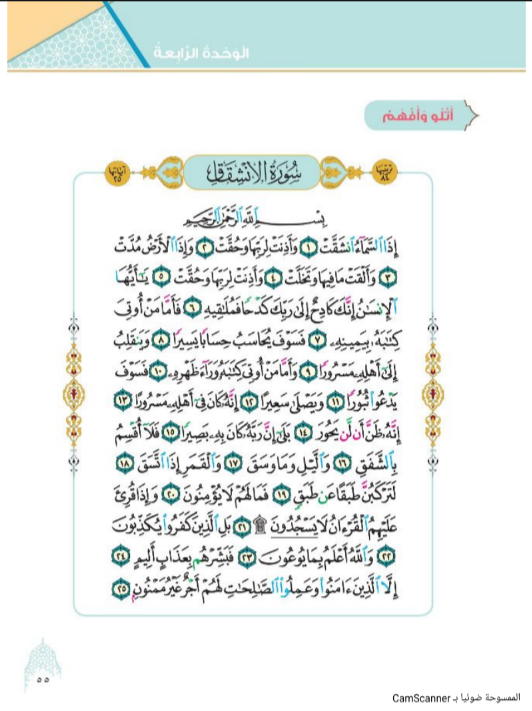 الوحدة الرابعة
أتلو وأفهم
ترتيبها ٨٤
سُورَةُ الانشِقَاقِ
آياتها ٢٥
بِسْمِ اللَّهِ الرَّحْمَٰنِ الرَّحِيمِ
إِذَا السَّمَاءُ انشَقَّتْ ١ وَأَذِنَتْ لِرَبِّهَا وَحُقَّتْ ٢ وَإِذَا الْأَرْضُ مُدَّتْ
٣ وَأَلْقَتْ مَا فِيهَا وَتَخَلَّتْ ٤ وَأَذِنَتْ لِرَبِّهَا وَحُقَّتْ ٥ يَٰٓأَيُّهَا
الْإِنسَٰنُ إِنَّكَ كَادِحٌ إِلَىٰ رَبِّكَ كَدْحًا فَمُلَٰقِيهِ ٦ فَأَمَّا مَنْ أُوتِيَ
كِتَٰبَهُۥ بِيَمِينِهِۦ ٧ فَسَوْفَ يُحَاسَبُ حِسَابًا يَسِيرًا ٨ وَيَنقَلِبُ
إِلَىٰٓ أَهْلِهِۦ مَسْرُورًا ٩ وَأَمَّا مَنْ أُوتِيَ كِتَٰبَهُۥ وَرَآءَ ظَهْرِهِۦ ١٠ فَسَوْفَ
يَدْعُوا۟ ثُبُورًا ١١ وَيَصْلَىٰ سَعِيرًا ١٢ إِنَّهُۥ كَانَ فِىٓ أَهْلِهِۦ مَسْرُورًا ١٣
إِنَّهُۥ ظَنَّ أَن لَّن يَحُورَ ١٤ بَلَىٰٓ إِنَّ رَبَّهُۥ كَانَ بِهِۦ بَصِيرًا ١٥ فَلَآ أُقْسِمُ
بِالشَّفَقِ ١٦ وَالَّيْلِ وَمَا وَسَقَ ١٧ وَالْقَمَرِ إِذَا اتَّسَقَ ١٨
لَتَرْكَبُنَّ طَبَقًا عَن طَبَقٍ ١٩ فَمَا لَهُمْ لَا يُؤْمِنُونَ ٢٠ وَإِذَا قُرِئَ
عَلَيْهِمُ الْقُرْءَانُ لَا يَسْجُدُونَ ۩ ٢١ بَلِ الَّذِينَ كَفَرُوا۟ يُكَذِّبُونَ
٢٢ وَاللَّهُ أَعْلَمُ بِمَا يُوعُونَ ٢٣ فَبَشِّرْهُم بِعَذَابٍ أَلِيمٍ ٢٤
إِلَّا الَّذِينَ ءَامَنُوا۟ وَعَمِلُوا۟ الصَّٰلِحَٰتِ لَهُمْ أَجْرٌ غَيْرُ مَمْنُونٍ ٢٥
٥٥
الممسوحة ضوئيا بـ CamScanner